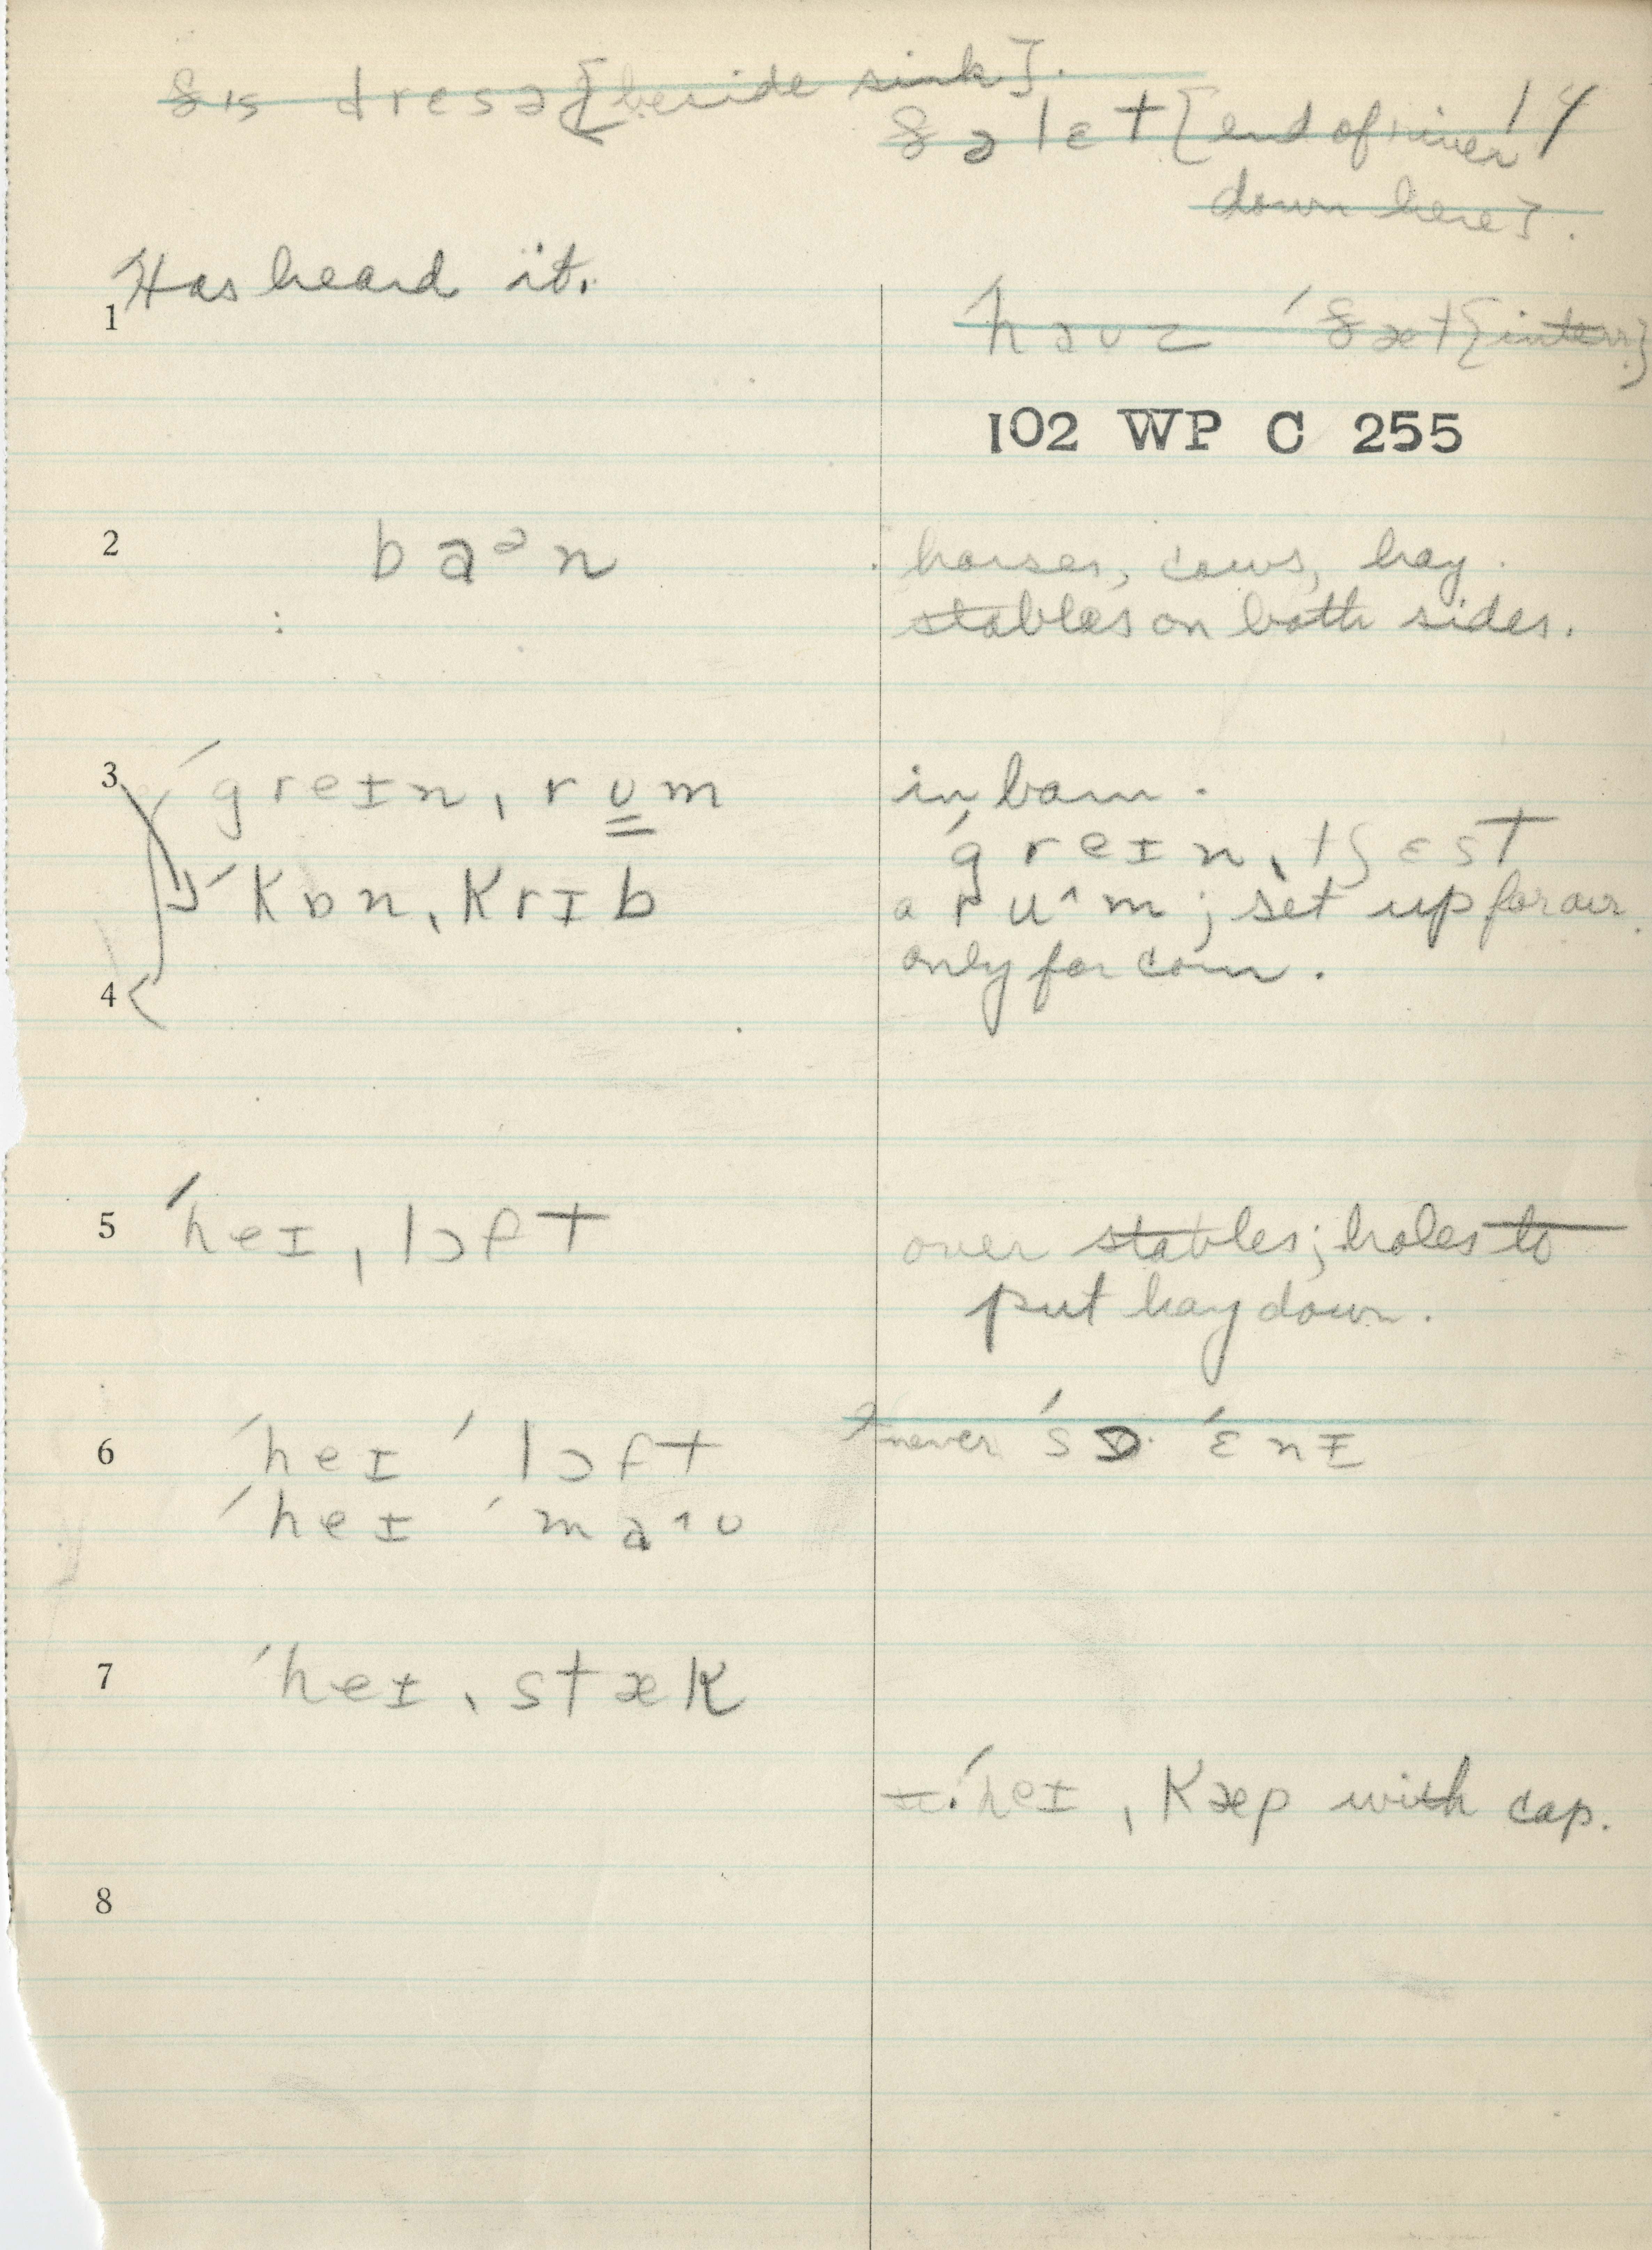 ðɪs dresə [beside sink].
14
ðə lɛt [end of river
down here].
Has heard it.
1
haʊz ˈðæt [interr.]
102 WP C 255
2 baᵊn horses, cows, hay.
stables on both sides.
3 ˈgreɪnˌrʊm in barn.
ˈgreɪnˌtʃɛst
ˈkɒnˌkrɪb a ru^m; set up for air.
only for corn.
4
5 ˈheɪˌlɔft over stables; holes to
put hay down.
6 ˈheɪ ˈlɔft never ˈsɒ ˈɛnɪ
ˈheɪ ˈmaʊ
7 ˈheɪˌstæk
ˈheɪˌkæp with cap.
8